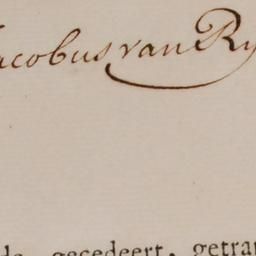 Jacobus van Ry
gecedeert, getra